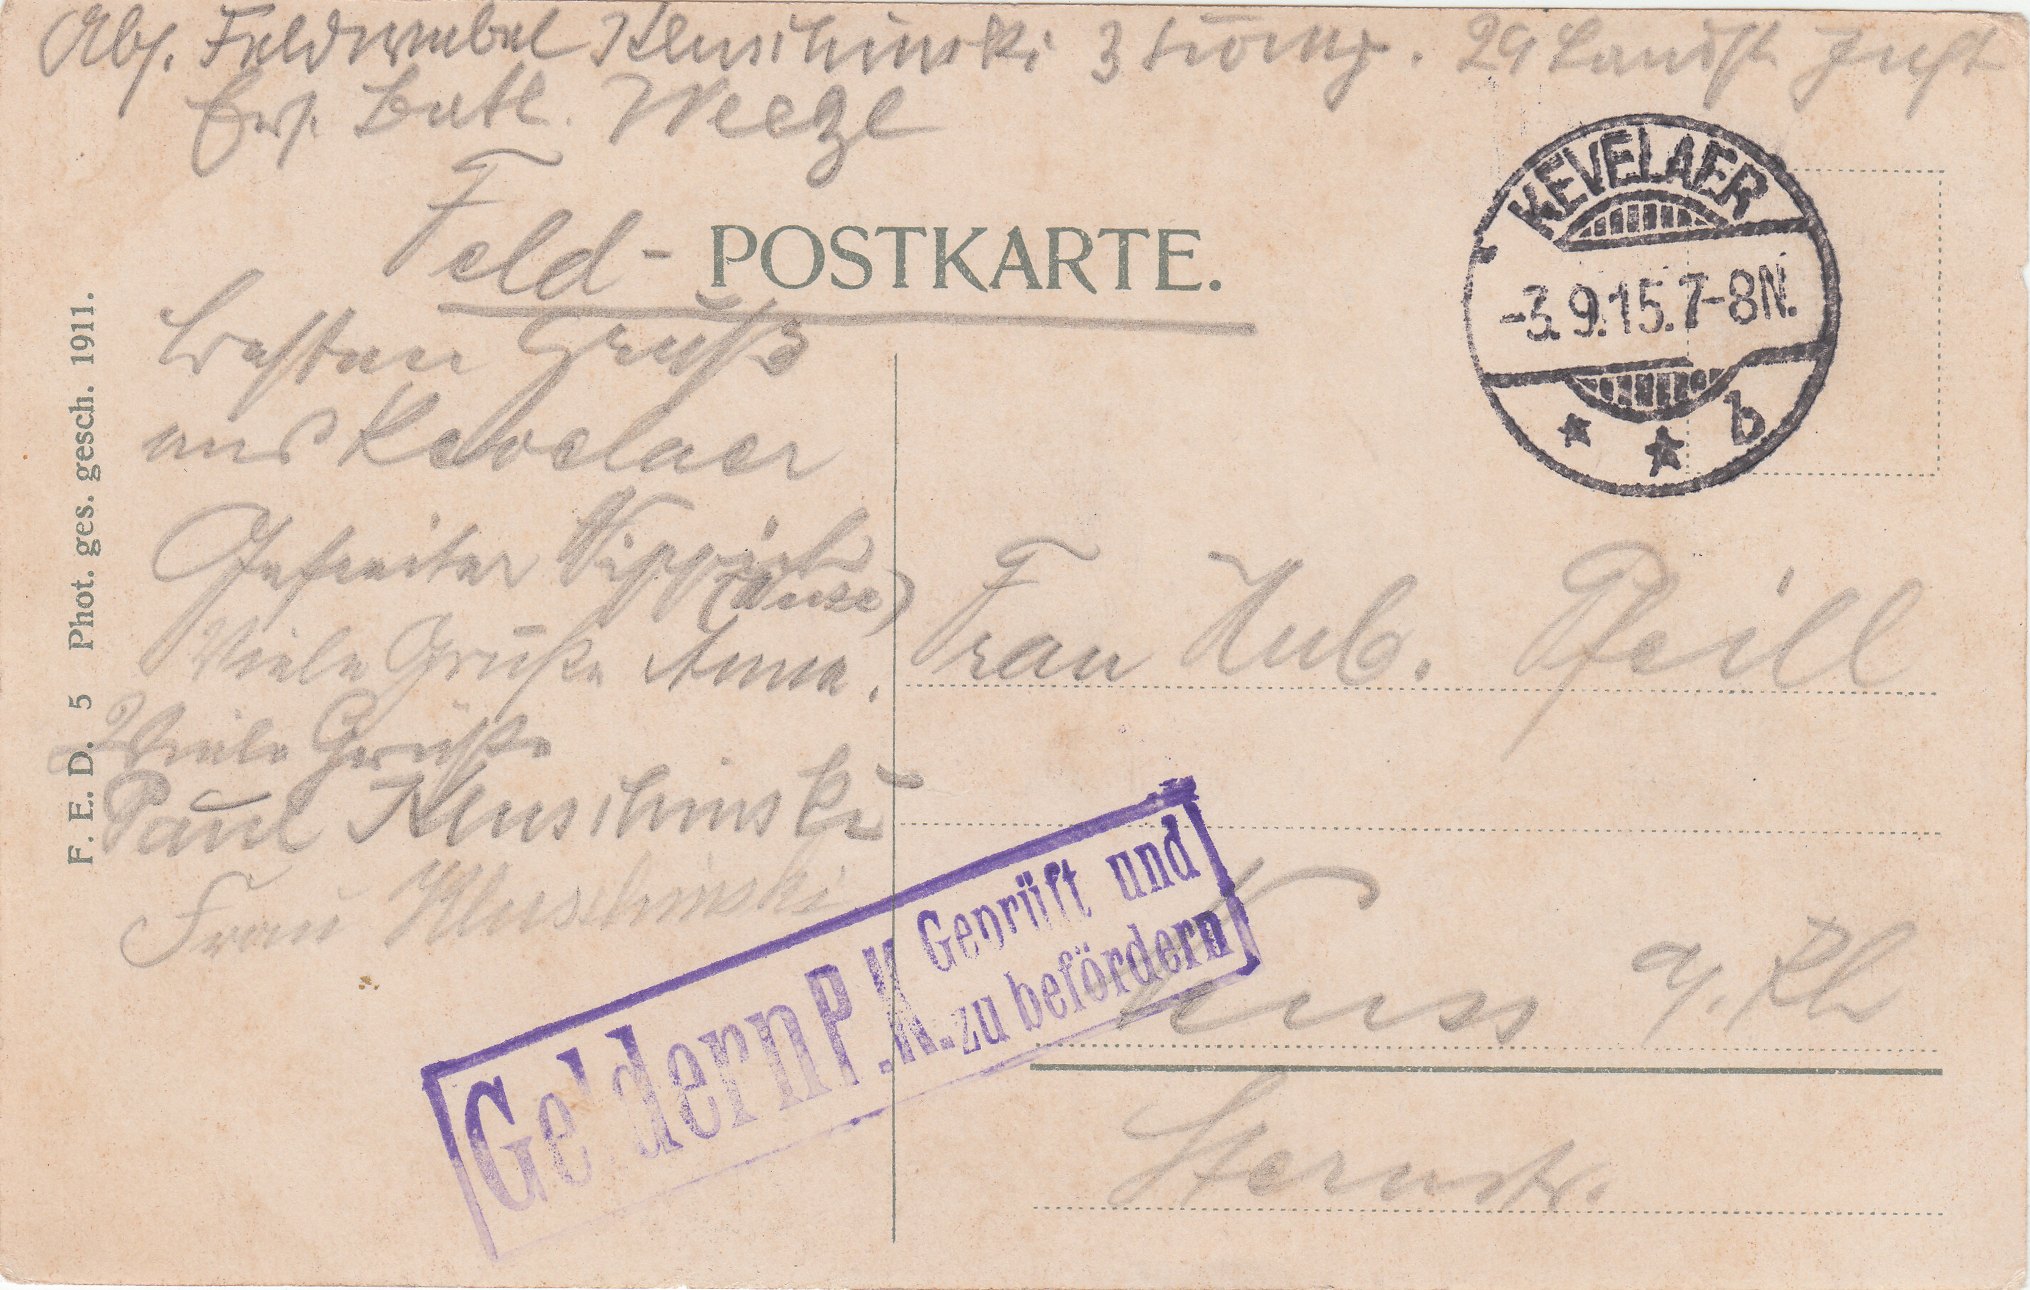 Abs. Feldwebel Kluschinski 3 Komp. 29 Landst. Inft
Ers. Batl. Weeze
Feld-POSTKARTE.
KEVELAER
-3.9.15.7-8N.
* * b
Besten Gruß
aus Kevelaer
Gefreiter
Viele Grüße Anna.
Viele Grüße
Paul Kluschinski
Frau Kluschinski
Frau Hub. Pfeill
Neuss a/. Rh
Sternstr.
Geldern P.K. Geprüft und
zu befördern
F. E. D. 5 Phot. ges. gesch. 1911.